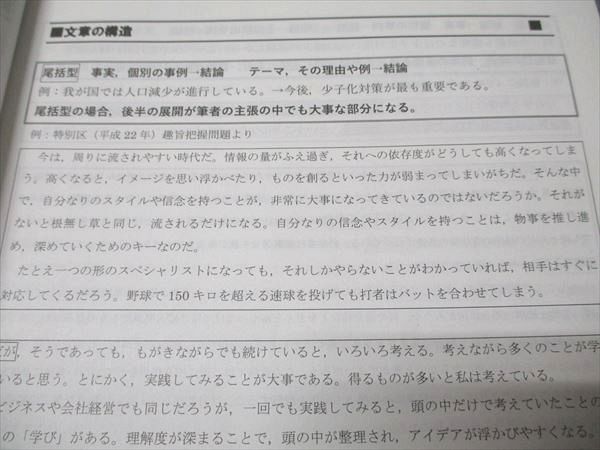 ■文章の構造 ■
尾括型 事実，個別の事例→結論 テーマ，その理由や例→結論
例：我が国では人口減少が進行している。→今後，少子化対策が最も重要である。
尾括型の場合，後半の展開が筆者の主張の中でも大事な部分になる。
例：特別区（平成 22 年）趣旨把握問題より
今は，周りに流されやすい時代だ。情報の量がふえ過ぎ，それへの依存度がどうしても高くなってしま
う。高くなると，イメージを思い浮かべたり，ものを創るといった力が弱まってしまいがちだ。そんな中
で，自分なりのスタイルや信念を持つことが，非常に大事になってきているのではないだろうか。それが
ないと根無し草と同じ，流されるだけになる。自分なりの信念やスタイルを持つことは，物事を推し進
め，深めていくためのキーなのだ。
たとえ一つの形のスペシャリストになっても，それしかやらないことがわかっていれば，相手はすぐに
対応してくるだろう。野球で 150 キロを超える速球を投げても打者はバットを合わせてしまう。
が，そうであっても，もがきながらでも続けていると，いろいろ考える。考えながら多くのことが学
いると思う。とにかく，実践してみることが大事である。得るものが多いと私は考えている。
ビジネスや会社経営でも同じだろうが，一回でも実践してみると，頭の中だけで考えていたことの
の「学び」がある。理解度が深まることで，頭の中が整理され，アイデアが浮かびやすくなる。